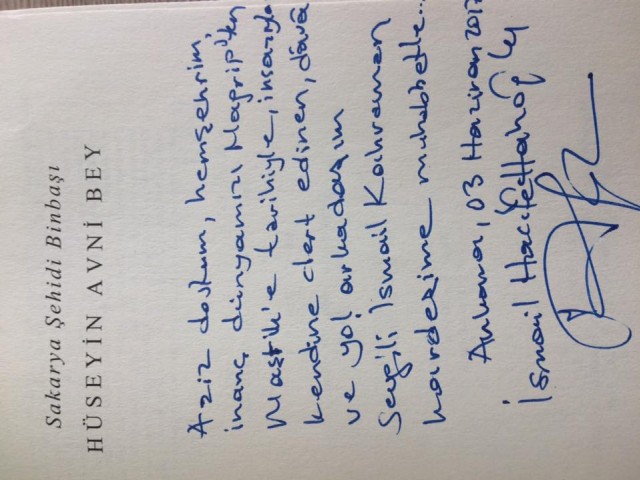 Sakarya Şehidi Binbaşı
HÜSEYİN AVNİ BEY
Aziz dostum, hemşehrim,
inanç dünyamızı Magrip'ten
Maşrik'e tarihiyle, insanıyla
kendine dert edinen, dâvâ
ve yol arkadaşım
Sevgili İsmail Kahraman
kardeşime muhabbetle...
Ankara, 03 Haziran 2017
İsmail Hacıfettahoğlu